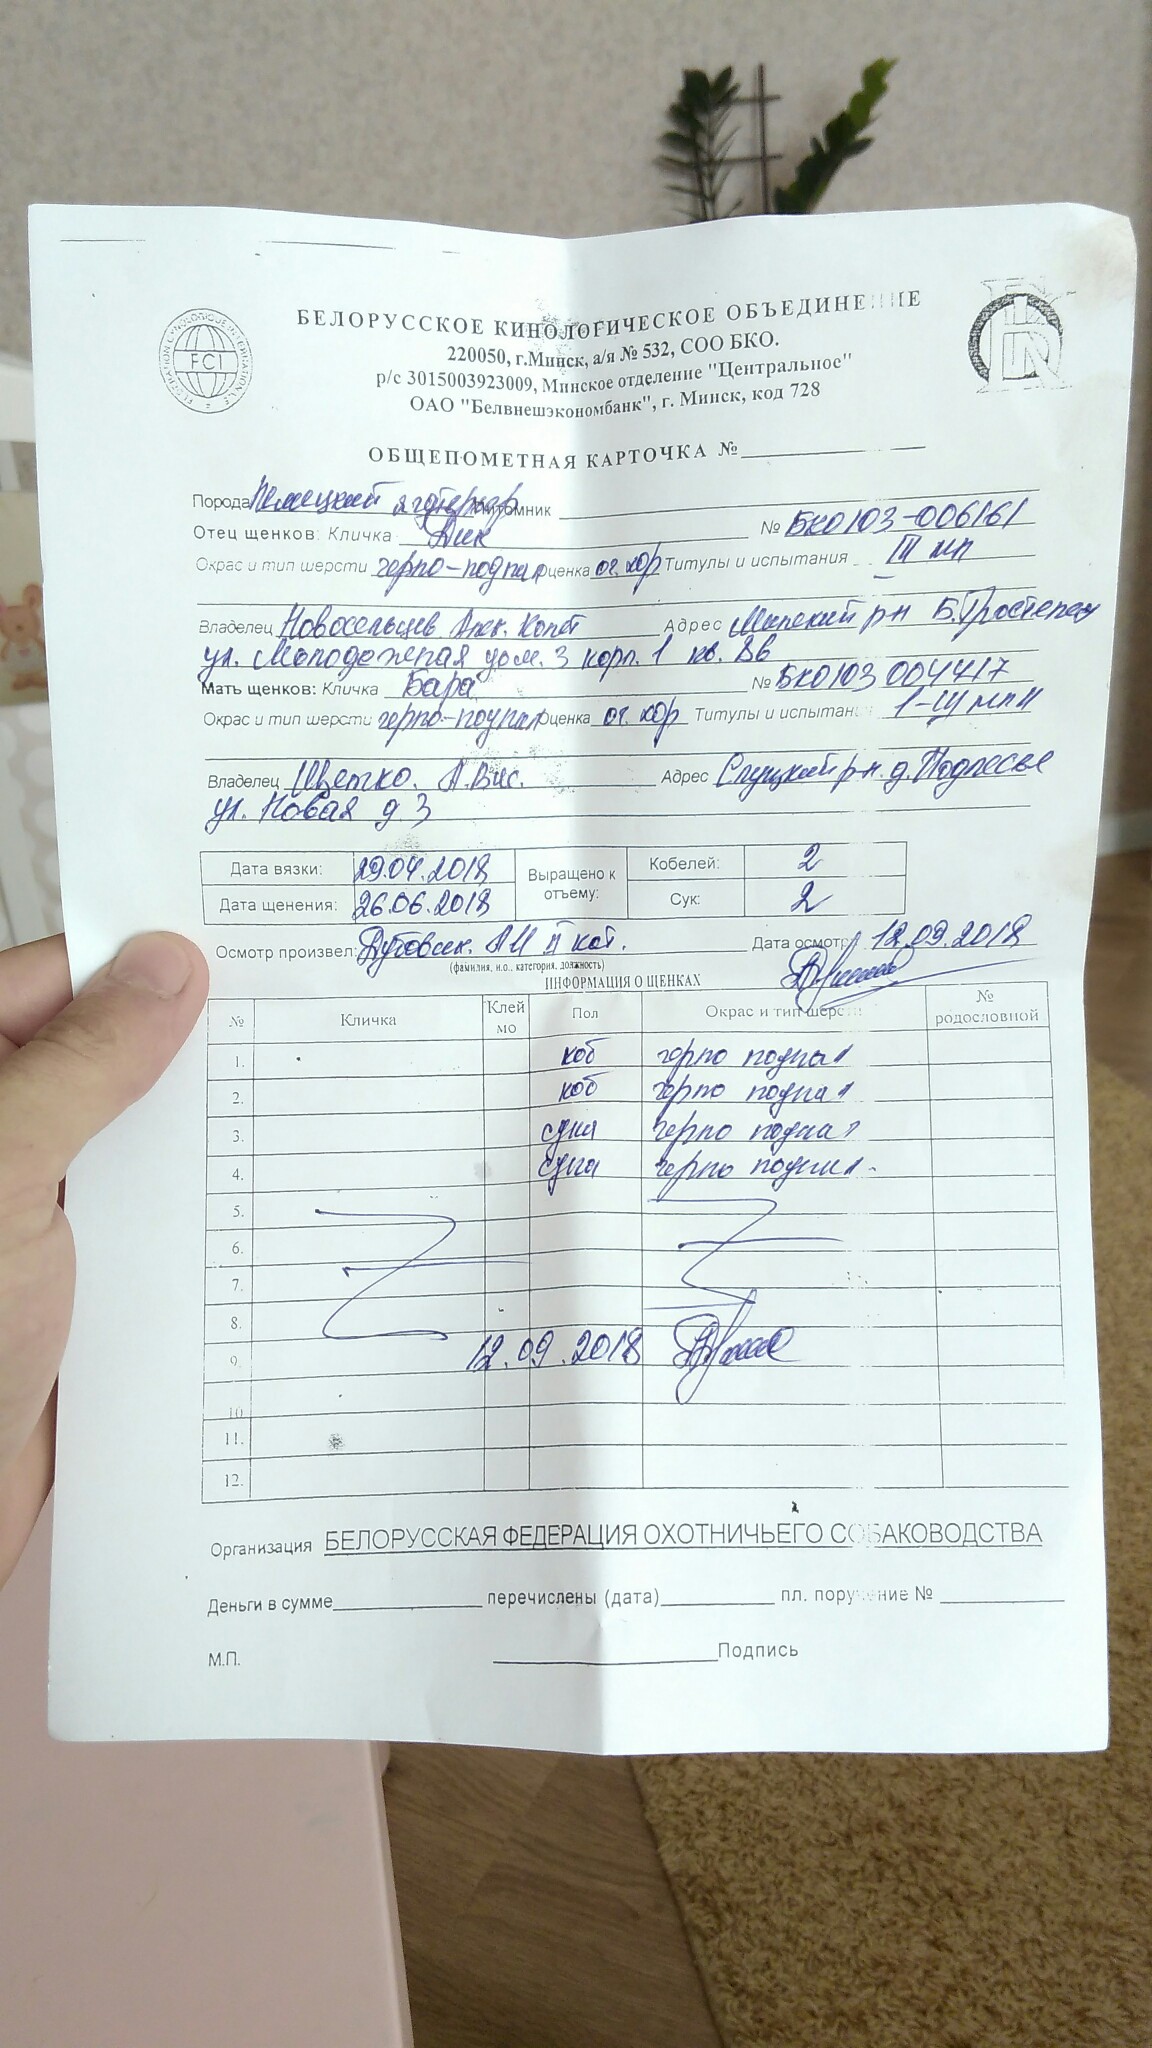 БЕЛОРУССКОЕ КИНОЛОГИЧЕСКОЕ ОБЪЕДИНЕНИЕ
220050, г.Минск, а/я № 532, СОО БКО.
р/с 3015003923009, Минское отделение "Центральное"
ОАО "Белвнешэкономбанк", г. Минск, код 728
FCI
ОБЩЕПОМЕТНАЯ КАРТОЧКА №
Порода Немецкий ягдтерьер Питомник
Отец щенков: Кличка Дик № БКО103-006161
Окрас и тип шерсти черно-подпал Оценка оч. хор Титулы и испытания III
Владелец Новосельцев Адрес Минский р-н Б.Тростенец
ул. Молодежная дом. 3 корп. 1 кв.
Мать щенков: Кличка Бара № БКО103 004417
Окрас и тип шерсти черно-подпал Оценка оч. хор Титулы и испытания
Владелец Цветко. А. Адрес Слуцкий р-н. д. Подлесье
ул. Новая д 3
Дата вязки: 29.04.2018 Выращено к отъему: Кобелей: 2
Дата щенения: 26.06.2018 Сук: 2
Осмотр произвел: кат. Дата осмотра 12.09.2018
(фамилия, и.о., категория, должность)
ИНФОРМАЦИЯ О ЩЕНКАХ
№ Кличка Клеймо Пол Окрас и тип шерсти № родословной
1. коб черно подпал
2. коб черно подпал
3. сука черно подпал
4. сука черно подпал
5.
6.
7.
8.
9. 12.09.2018
10
11.
12.
Организация БЕЛОРУССКАЯ ФЕДЕРАЦИЯ ОХОТНИЧЬЕГО СОБАКОВОДСТВА
Деньги в сумме перечислены (дата) пл. поручение №
М.П. Подпись